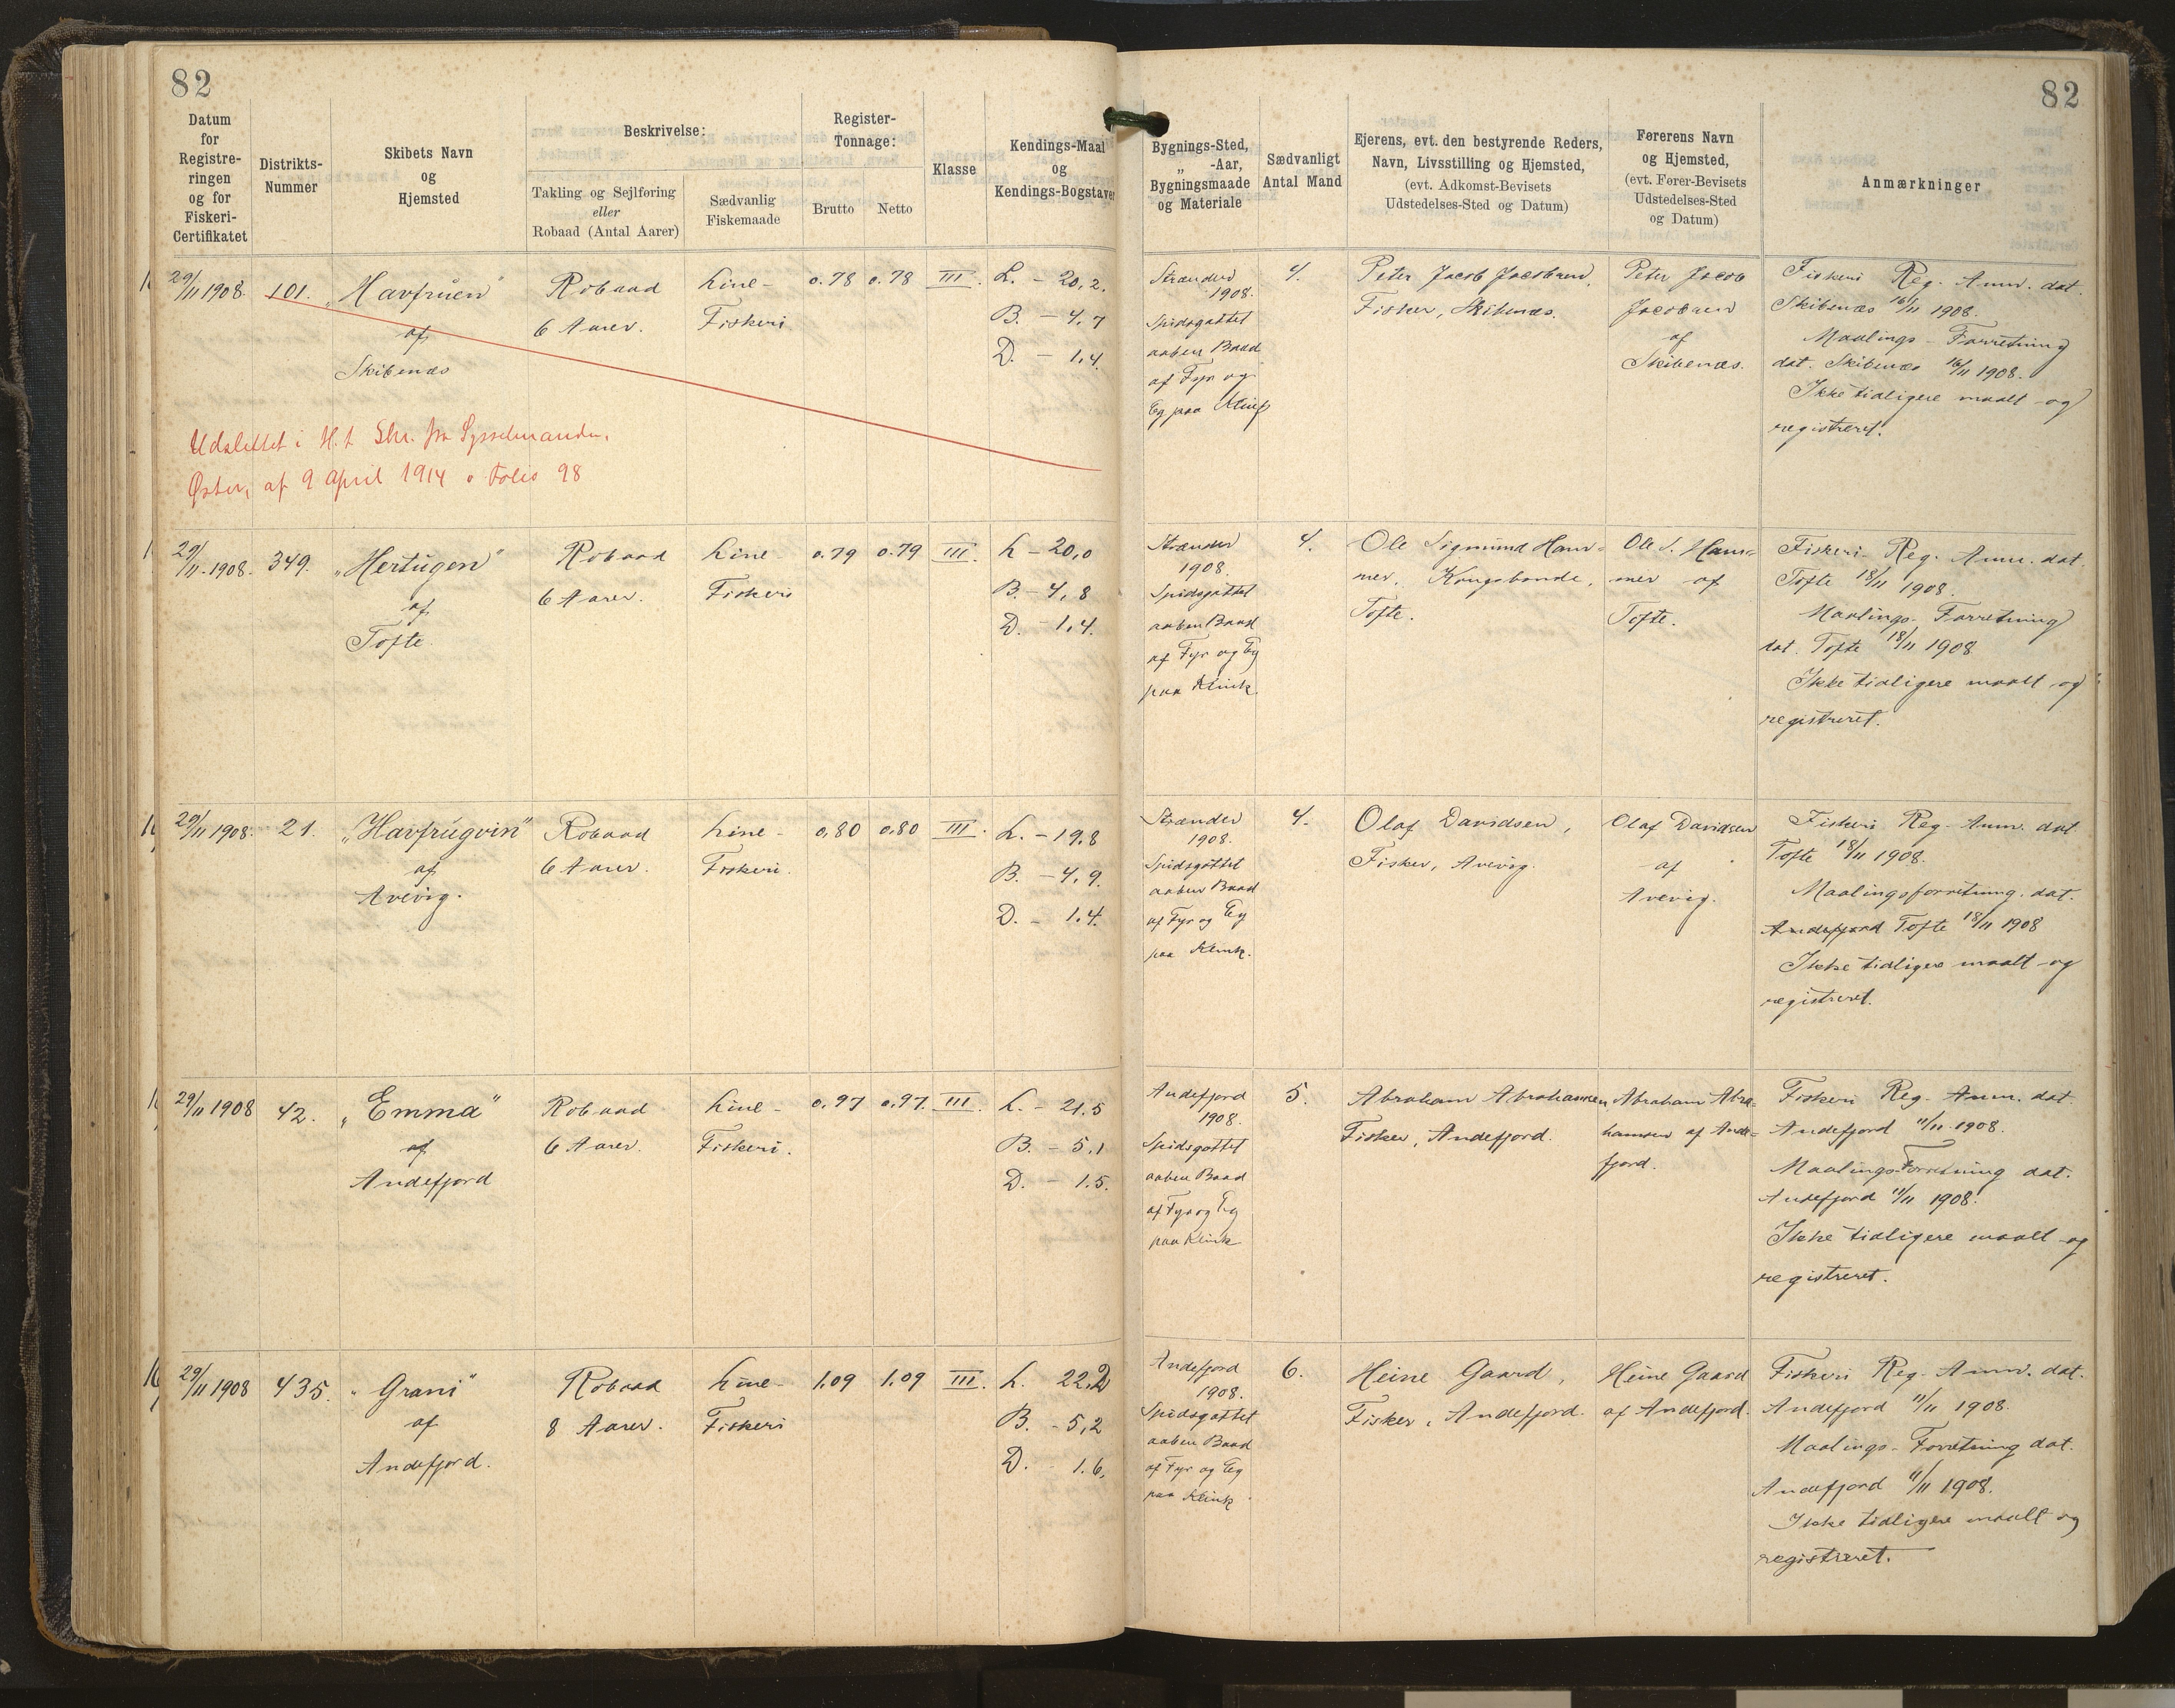 82
82
Datum for Registreringen og for Fiskeri-Certifikatet
Distrikts-Nummer
Skibets Navn og Hjemsted
Beskrivelse:
Takling og Sejlføring eller Robaad (Antal Aarer)
Sædvanlig Fiskemaade
Register-Tonnage:
Brutto
Netto
Klasse
Kendings-Maal og Kendings-Bogstaver
Bygnings-Sted, „ -Aar, Bygningsmaade og Materiale
Sædvanligt Antal Mand
Ejerens, evt. den bestyrende Reders, Navn, Livsstilling og Hjemsted, (evt. Adkomst-Bevisets Udstedelses-Sted og Datum)
Førerens Navn og Hjemsted, (evt. Fører-Bevisets Udstedelses-Sted og Datum)
Anmærkninger
29/11 1908. 101. „Havfruen" Robaad Line- 0.78 0.78 III. L. - 20,2.
af 6 Aarer. Fiskeri B. - 4,7
Skibenæs D. - 1,4.
Strænder 1908. 4. Peter Jacob Jacobsen, Peter Jacob
Spidsgattet Fisker, Skibenæs. Jacobsen
aaben Baad af
af Fyr og Skibenæs.
Eg paa Klink
Fiskeri Reg. Anm. dat.
Skibenæs 16/11 1908.
Maalings-Forretning
dat. Skibenæs 16/11 1908.
Ikke tidligere maalt og
registreret.
Udslettet i H. t. Skr. fra Sysselmanden,
Østerø, af 9 April 1914 Folio 98
29/11. 1908. 349. „Hertugen" Robaad Line- 0.79 0.79 III. L - 20,0
af 6 Aarer. Fiskeri B. - 4,8
Tofte. D. - 1,4.
Strænder 1908. 4. Ole Sigmund Ham- Ole S. Ham-
Spidsgattet mer, Kongsbonde, mer af
aaben Baad Tofte. Tofte.
af Fyr og Eg
paa Klink.
Fiskeri-Reg. Anm. dat.
Tofte 18/11 1908.
Maalings-Forretning
dat. Tofte 18/11 1908
Ikke tidligere maalt og
registreret.
29/11 1908. 21. „Havfrugvin" Robaad Line- 0,80 0,80 III. L. - 19.8
af 6 Aarer. Fiskeri. B. - 4,9.
Avevig. D. - 1.4.
Strænder 1908. 4. Olaf Davidsen, Olaf Davidsen
Spidsgattet Fisker, Avevig. af
aaben Baad Avevig.
af Fyr og Eg
paa Klink.
Fiskeri Reg. Anm. dat
Tofte 18/11 1908.
Maalingsforretning. dat.
Andefjord Tofte 18/11 1908
Ikke tidligere maalt og
registreret.
29/11 1908 42. „Emma" Robaad Line- 0.97 0.97. III. L. - 21.5
af 6 Aarer. Fiskeri. B. - 5,1
Andefjord D. - 1.5.
Andefjord 1908. 5. Abraham Abrahamsen Abraham Abra-
Spidsgattet Fisker, Andefjord. hamsen af Ande-
aaben Baad fjord.
af Fyr og Eg
paa Klink
Fiskeri Reg. Anm. dat.
Andefjord 11/11. 1908.
Maalings-Forretning dat.
Andefjord 11/11 1908.
Ikke tidligere maalt og
registreret.
29/11 1908 435. „Grani" Robaad Line- 1.09 1.09 III. L. 22,2
af 8 Aarer. Fiskeri B. - 5,2
Andefjord. D. 1.6.
Andefjord 1908. 6. Heine Gaard, Heine Gaard
Spidsgattet Fisker, Andefjord. af Andefjord.
aaben Baad
af Fyr og Eg
paa Klink
Fiskeri Reg. Anm. dat.
Andefjord 11/11 1908
Maalings-Forretning dat.
Andefjord 11/11 1908.
Ikke tidligere maalt og
registreret.